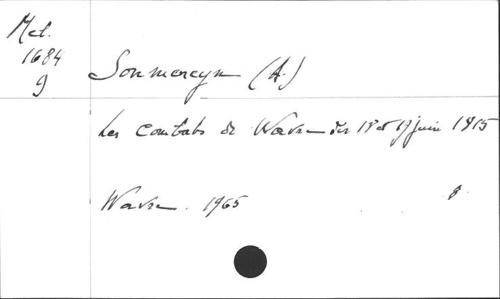 Mel.
1684
9
Sonmereyn (A.)
Les Combats de Wavre des 18 et 19 juin 1815
Wavre. 1965
8.